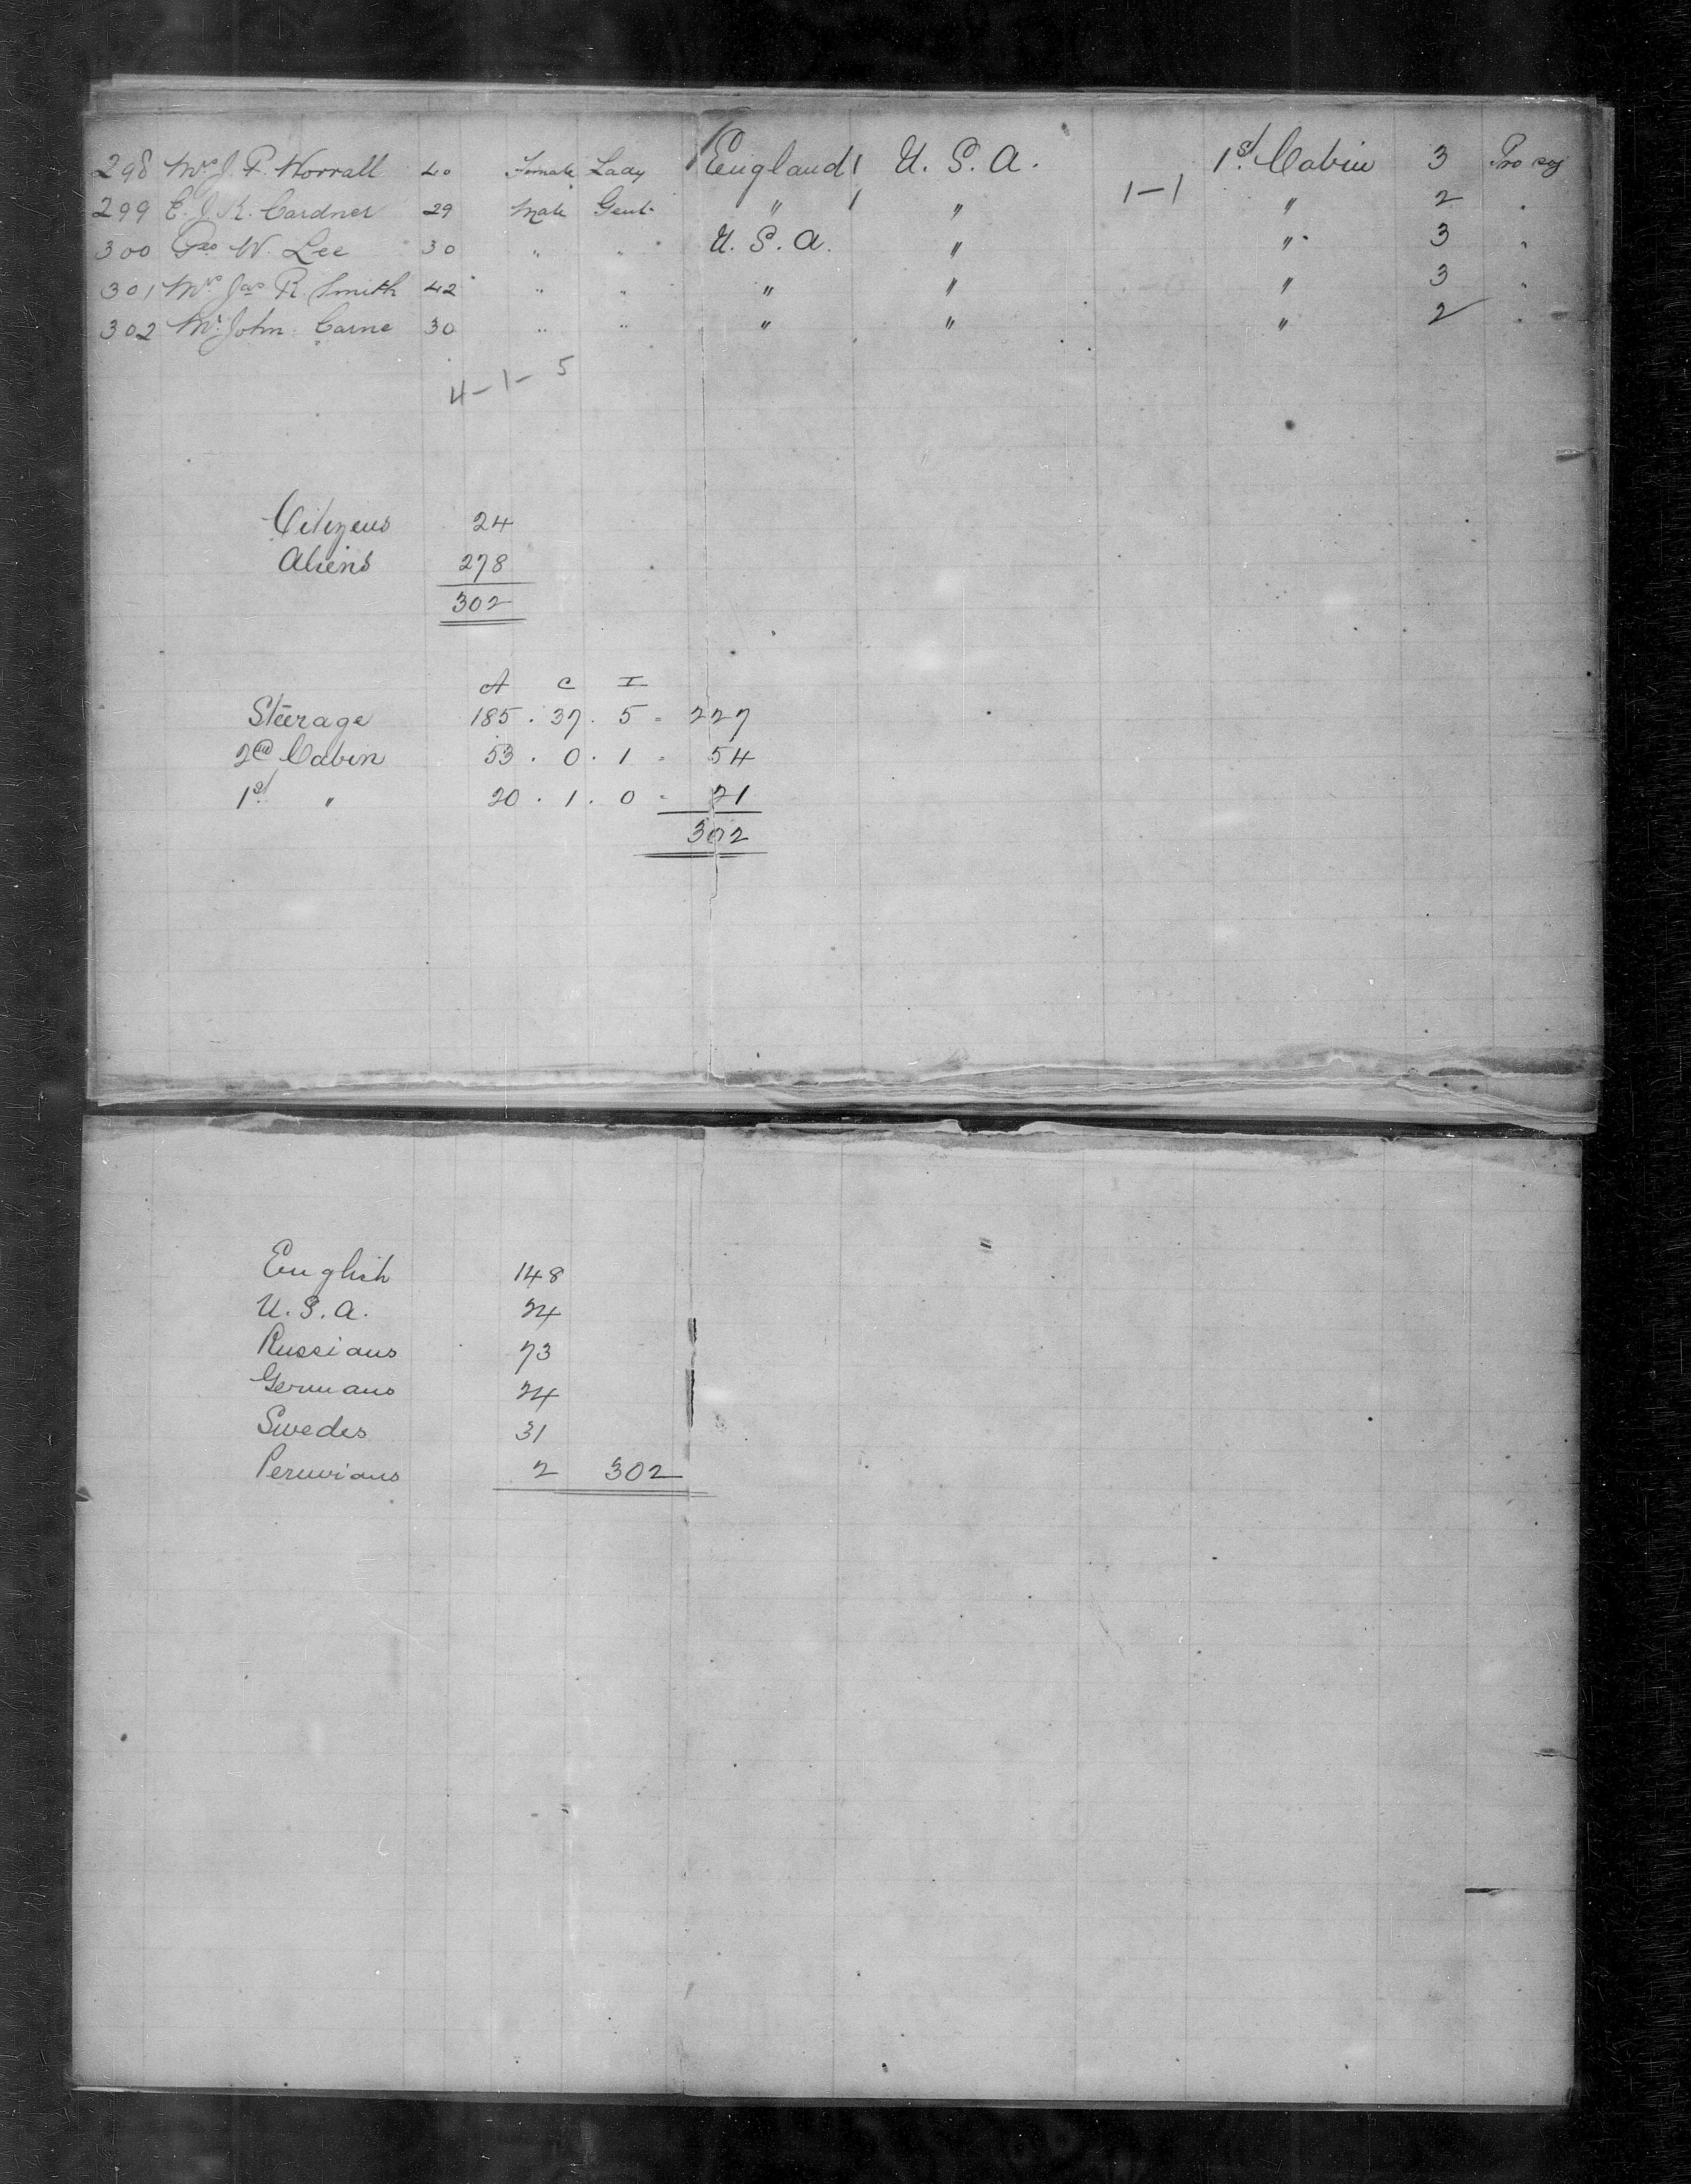 298 Mrs J. P. Worrall 40 Female Lady England 1 U.S.A. 1st Cabin 3 Pro soj
299 E. J. K. Cardner 29 Male Gent. " 1 " 1-1 " 2 "
300 Geo W. Lee 30 " " U.S.A. " " 3 "
301 Mrs Jas R. Smith 42 " " " " " 3 "
302 Mr John Carne 30 " " " " " 2 "
4-1-5
Citizens 24
Aliens 278
302
A C I
Steerage 185 . 37 . 5 = 227
2nd Cabin 53 . 0 . 1 = 54
1st " 20 . 1 . 0 = 21
302
English 148
U.S.A. 24
Russians 73
Germans 24
Swedes 31
Peruvians 2 302